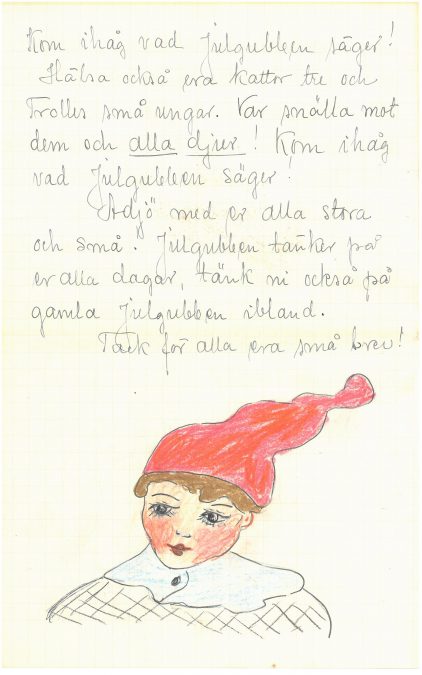 Kom ihåg vad julgubben säger!
Hälsa också era kattor tre och
Trolles små ungar. Var snälla mot
dem och alla djur! Kom ihåg
vad julgubben säger!
"Adjö" med er alla stora
och små. Julgubben tänker på
er alla dagar, tänk ni också på
gamla julgubben ibland.
Tack för alla era små brev!